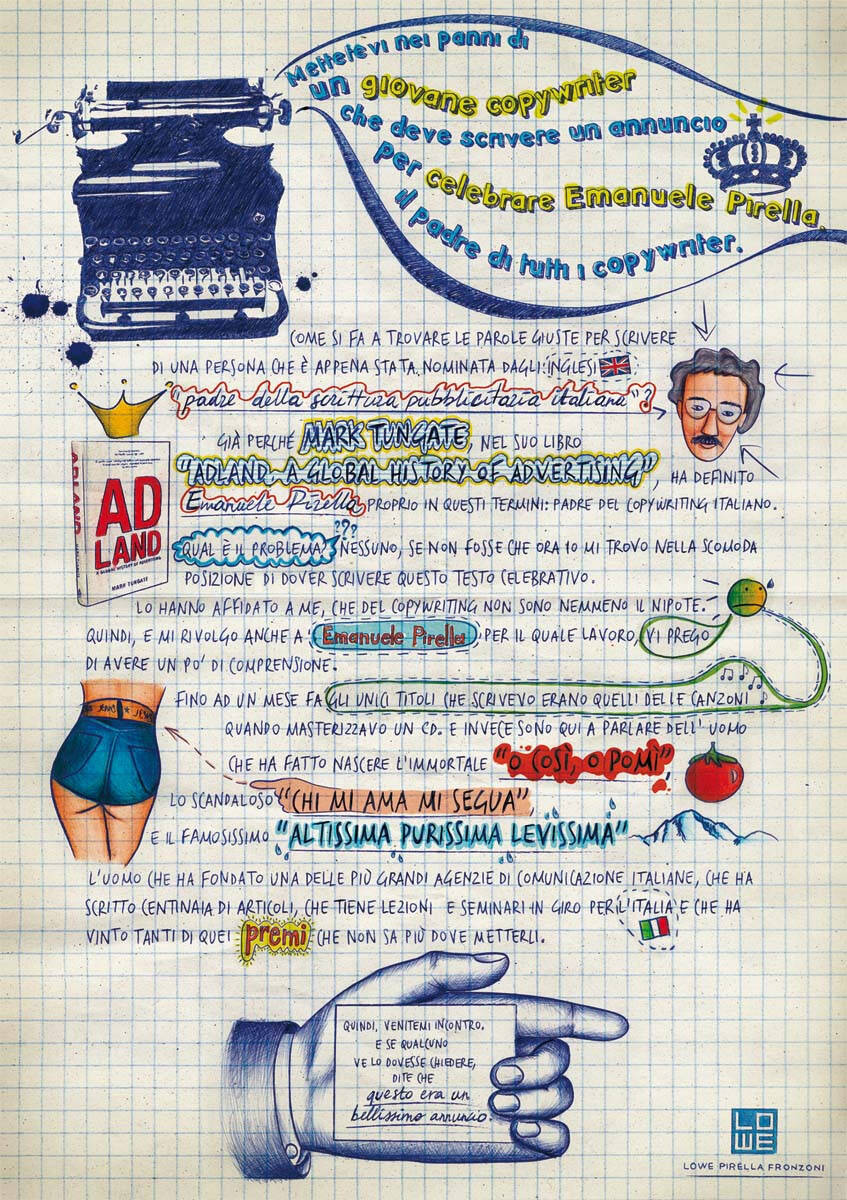 Mettetevi nei panni di
un giovane copywriter
che deve scrivere un annuncio
per celebrare Emanuele Pirella,
il padre di tutti i copywriter.
COME SI FA A TROVARE LE PAROLE GIUSTE PER SCRIVERE
DI UNA PERSONA CHE È APPENA STATA NOMINATA DAGLI INGLESI
"padre della scrittura pubblicitaria italiana"?
GIÀ PERCHÉ MARK TUNGATE, NEL SUO LIBRO
"ADLAND. A GLOBAL HISTORY OF ADVERTISING", HA DEFINITO
Emanuele Pirella PROPRIO IN QUESTI TERMINI: PADRE DEL COPYWRITING ITALIANO.
ADLAND
AD
LAND
A GLOBAL HISTORY OF ADVERTISING
MARK TUNGATE
???
QUAL È IL PROBLEMA? NESSUNO, SE NON FOSSE CHE ORA IO MI TROVO NELLA SCOMODA
POSIZIONE DI DOVER SCRIVERE QUESTO TESTO CELEBRATIVO.
LO HANNO AFFIDATO A ME, CHE DEL COPYWRITING NON SONO NEMMENO IL NIPOTE.
QUINDI, E MI RIVOLGO ANCHE A Emanuele Pirella PER IL QUALE LAVORO, VI PREGO
DI AVERE UN PO' DI COMPRENSIONE.
FINO AD UN MESE FA GLI UNICI TITOLI CHE SCRIVEVO ERANO QUELLI DELLE CANZONI
QUANDO MASTERIZZAVO UN CD. E INVECE SONO QUI A PARLARE DELL' UOMO
CHE HA FATTO NASCERE L'IMMORTALE "O COSÌ, O POMÌ",
LO SCANDALOSO "CHI MI AMA MI SEGUA",
E IL FAMOSISSIMO "ALTISSIMA PURISSIMA LEVISSIMA"
L'UOMO CHE HA FONDATO UNA DELLE PIÙ GRANDI AGENZIE DI COMUNICAZIONE ITALIANE, CHE HA
SCRITTO CENTINAIA DI ARTICOLI, CHE TIENE LEZIONI E SEMINARI IN GIRO PER L'ITALIA E CHE HA
VINTO TANTI DI QUEI premi CHE NON SA PIÙ DOVE METTERLI.
QUINDI, VENITEMI INCONTRO.
E SE QUALCUNO
VE LO DOVESSE CHIEDERE,
DITE CHE
questo era un
bellissimo annuncio.
LO
WE
LOWE PIRELLA FRONZONI